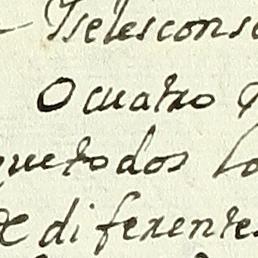 Yselescons
O cuatro
quetodos lo
de diferentes